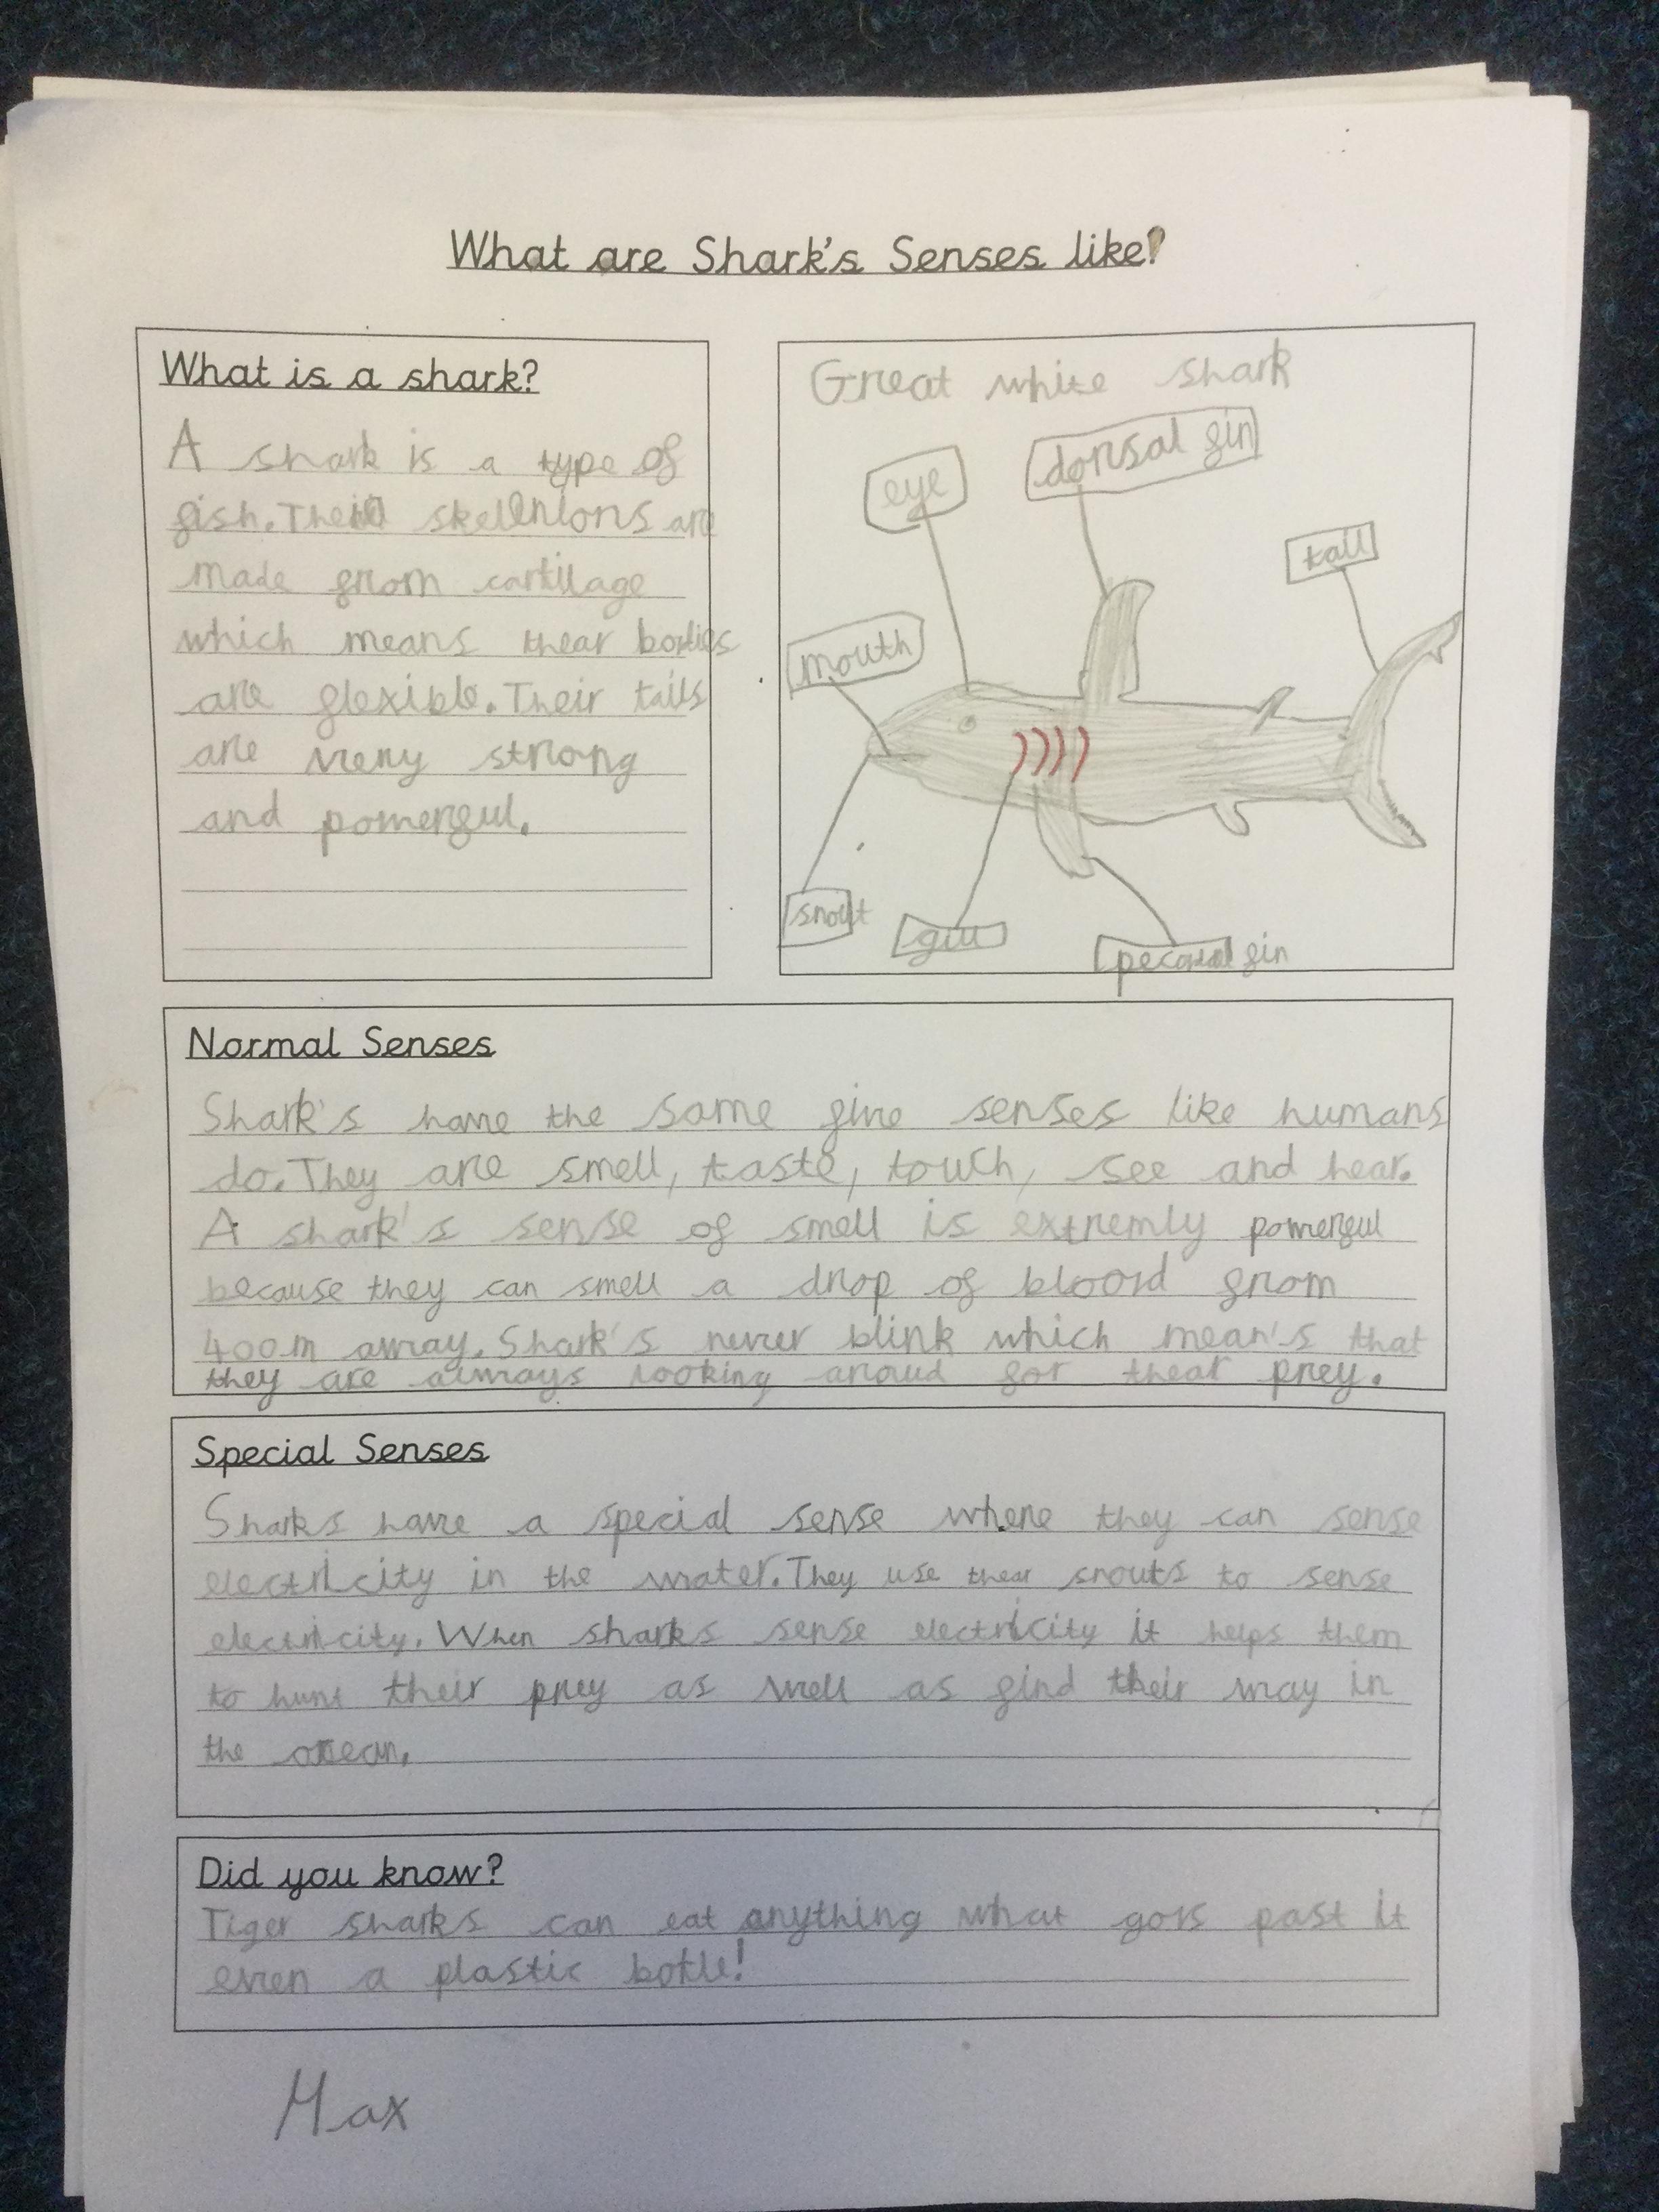 What are Shark's Senses like?
What is a shark?
A shark is a type of
fish. Their skelentons are
made from cartilage
which means thear bodies
are flexible. Their tails
are very strong
and powerful.
Great white shark
eye
dorsal fin
tail
mouth
snout
gill
fin
Normal Senses
Shark's have the same five senses like humans
do. They are smell, taste, touch, see and hear.
A shark's sense of smell is extremly powerful
because they can smell a drop of blood from
400m away. Shark's never blink which mean's that
they are always looking aroud for thear prey.
Special Senses
Sharks have a special sense where they can sense
electricity in the water. They use thear snouts to sense
electricity. When sharks sense electricity it helps them
to hunt their prey as well as find their way in
the ocean.
Did you know?
Tiger sharks can eat anything what gois past it
even a plastic bottle!
Max